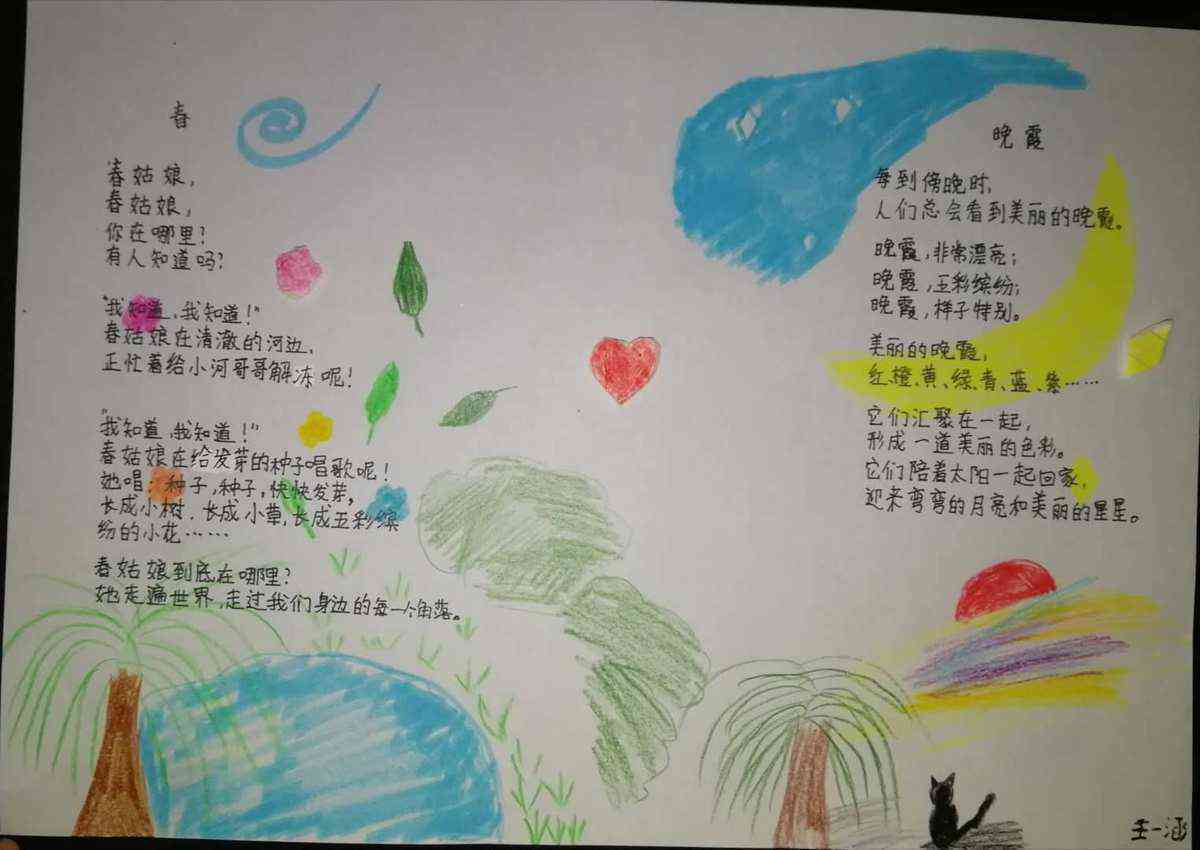 春
春姑娘，
春姑娘，
你在哪里？
有人知道吗？
“我知道，我知道！”
春姑娘在清澈的河边，
正忙着给小河哥哥解冻呢！
“我知道，我知道！”
春姑娘在给发芽的种子唱歌呢！
她唱：种子，种子，快快发芽，
长成小树，长成小草，长成五彩缤
纷的小花……
春姑娘到底在哪里？
她走遍世界，走过我们身边的每一个角落。
晚霞
每到傍晚时，
人们总会看到美丽的晚霞。
晚霞，非常漂亮；
晚霞，五彩缤纷；
晚霞，样子特别。
美丽的晚霞，
红、橙、黄、绿、青、蓝、紫……
它们汇聚在一起，
形成一道美丽的色彩。
它们陪着太阳一起回家，
迎来弯弯的月亮和美丽的星星。
王一涵